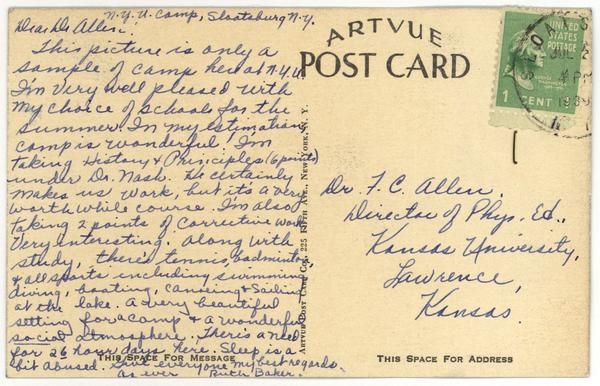 N.Y.U. Camp, Slootsburg N.Y.
Dear Dr. Allen:
This picture is only a
sample of camp here at N.Y.U.
I'm very well pleased with
my choice of schools for the
summer. In my estimation
camp is wonderful. I'm
taking History & Principles (6 points)
under Dr. Nash. He certainly
makes us work, but it's a very
worth while course. I'm also
taking 2 points of corrective work
Very interesting. Along with
study, there's tennis, badminton,
& all sports including swimming,
diving, boating, canoeing & sailing
at the lake. A very beautiful
setting for a camp & a wonderful
social atmosphere. There's a need
for 26 hour days here. Sleep is a
bit abused. Give everyone my best regards.
as ever Ruth Baker.
THIS SPACE FOR MESSAGE
ARTVUE POST CARD CO., 225 FIFTH AVE., NEW YORK, N. Y.
ARTVUE
POST CARD
UNITED
STATES
POSTAGE
1 CENT 1
4 PM
1939
Dr. F. C. Allen,
Director of Phys. Ed.,
Kansas University,
Lawrence,
Kansas.
THIS SPACE FOR ADDRESS